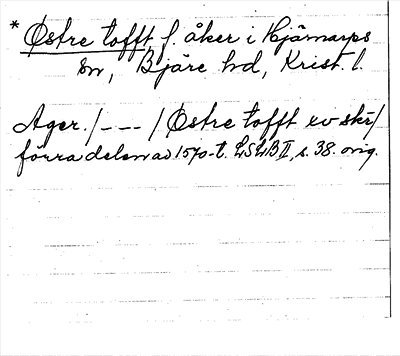 * Østre tofft, f. åker i Hjärnarps
sn, Bjäre hd, Krist. l.
Ager. /- - - / Østre tofft xv skr/
förra delen av 1570-t. LSLB II, s. 38. orig.